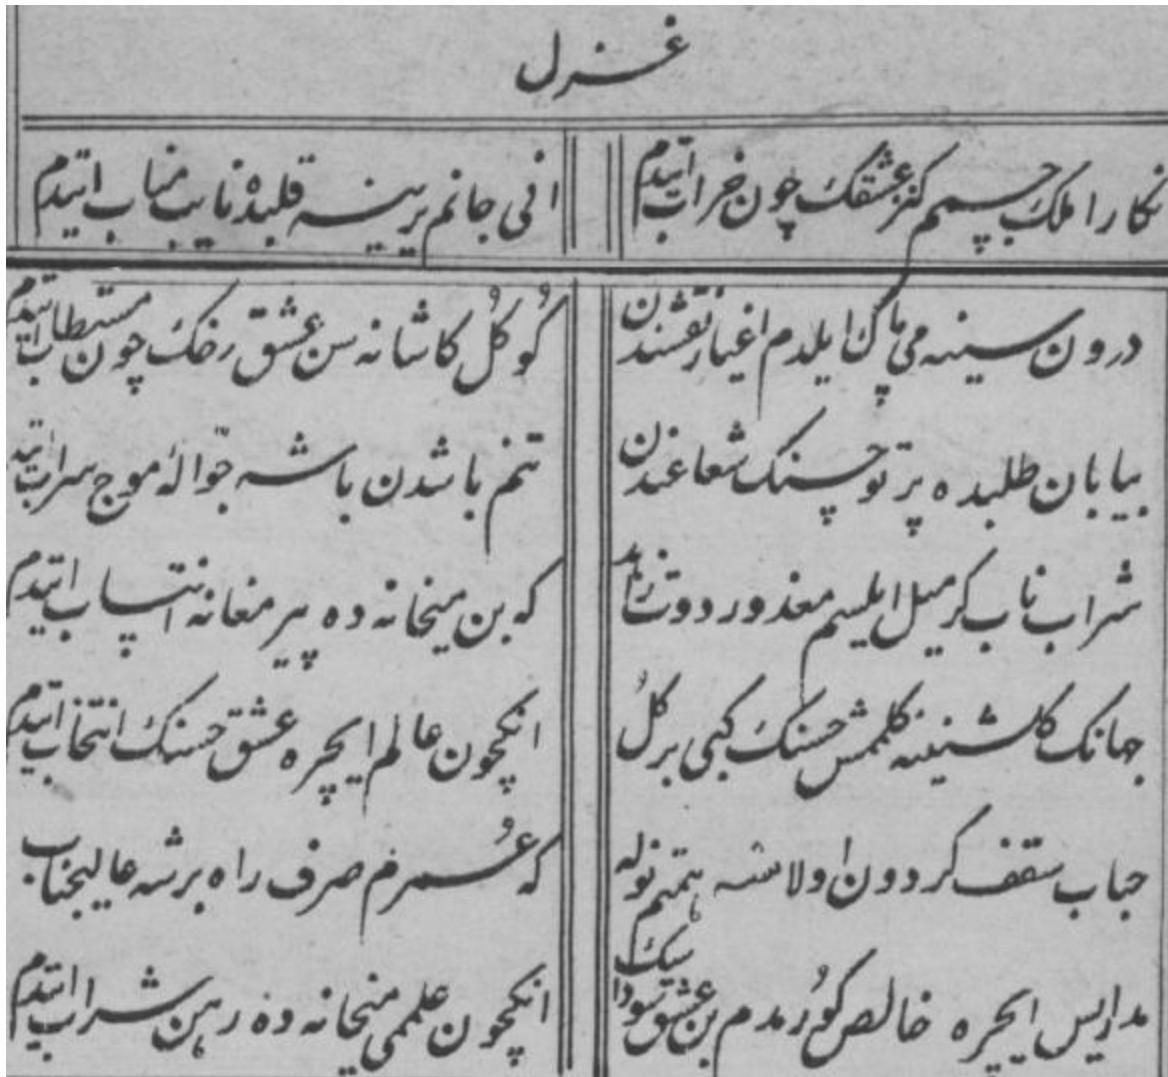 غزل
نكارا ملك چسمم كنز عشقك چون خراب ايتدم
انى جانم يرينه قلبده نايب مناب ايتدم
درون سينه مى پاك ايلدم اغيار نقشندن
كُوكُل كاشانه سن عشق رخك چون مستطاب ايتدم
بيابان طلبده پرتو حسنك شعاعندن
تنم باشدن باشه جوّالهٔ موج سراب ايتدم
شراب نابه كر ميل ايلسم معذور دوت زاهد
كه بن ميخانه ده پير مغانه انتساب ايتدم
جهانك كلشنينه كلممش حسنك كبى بر كُل
انكچون عالم ايچره عشق حسنك انتخاب ايتدم
حباب سقف كردون اولاشه همتم نوله
كه عُمرم صرف راه بر شه عاليجناب
مداريس ايچره خالص كورمدم بن عشق سوداسك
انكچون علممى ميخانه ده رهن شراب ايتدم